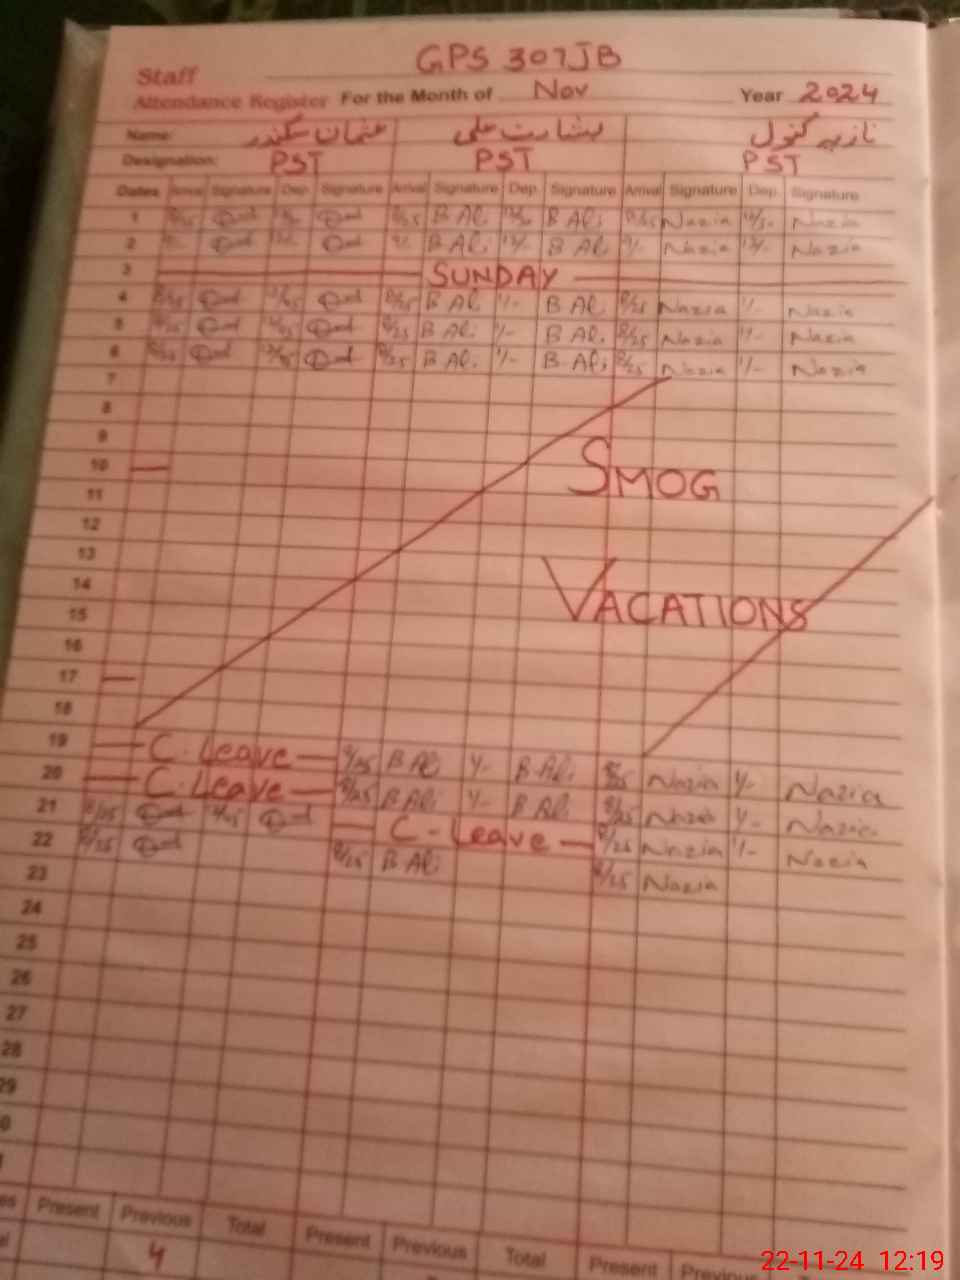 GPS 307JB
Staff
Attendance Register For the Month of Nov Year 2024
Name: عثمان سکندر بشارت علی نازیہ کنول
Designation: PST PST PST
Dates Arrival Signature Dep. Signature Arrival Signature Dep. Signature Arrival Signature Dep. Signature
1 8/25 B Ali B Ali 8/25 Nazia Nazia
2 B Ali B Ali Nazia Nazia
3 SUNDAY
4 8/25 8/25 B Ali 1/- B Ali 8/25 Nazia 1/- Nazia
5 8/25 8/25 B Ali 1/- B Ali 8/25 Nazia 1/- Nazia
6 8/25 8/25 B Ali 1/- B Ali 8/25 Nazia 1/- Nazia
7
8
9
10 SMOG
11
12
13
14
15 VACATIONS
16
17
18
19 C. Leave 8/25 B Ali 1/- B Ali 8/25 Nazia 1/- Nazia
20 C. Leave 8/25 B Ali 1/- B Ali 8/25 Nazia 1/- Nazia
21 8/25 C - Leave 8/25 Nazia 1/- Nazia
22 8/25 8/25 B Ali 8/25 Nazia
23
24
25
26
27
28
29
0
Present Previous Total Present Previous Total Present Previous
4
22-11-24 12:19